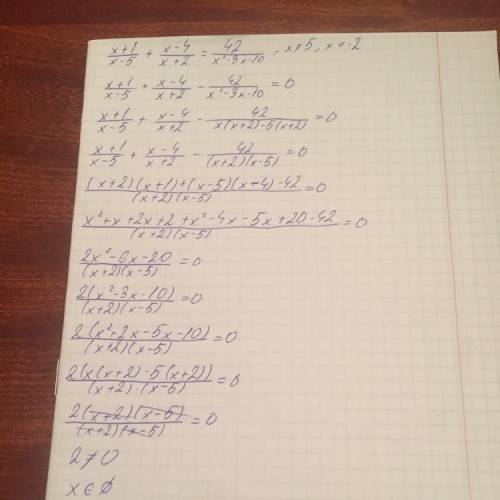 (x+1)/(x-5) + (x-4)/(x+2) = 42/(x²-3x-10), x≠5, x≠-2
(x+1)/(x-5) + (x-4)/(x+2) - 42/(x²-3x-10) = 0
(x+1)/(x-5) + (x-4)/(x+2) - 42/(x(x+2)-5(x+2)) = 0
(x+1)/(x-5) + (x-4)/(x+2) - 42/((x+2)(x-5)) = 0
((x+2)(x+1)+(x-5)(x-4)-42)/((x+2)(x-5)) = 0
(x²+x+2x+2+x²-4x-5x+20-42)/((x+2)(x-5)) = 0
(2x²-6x-20)/((x+2)(x-5)) = 0
2(x²-3x-10)/((x+2)(x-5)) = 0
2(x²+2x-5x-10)/((x+2)(x-5)) = 0
2(x(x+2)-5(x+2))/((x+2)·(x-5)) = 0
2(x+2)(x-5)/((x+2)(x-5)) = 0
2≠0
x∈∅